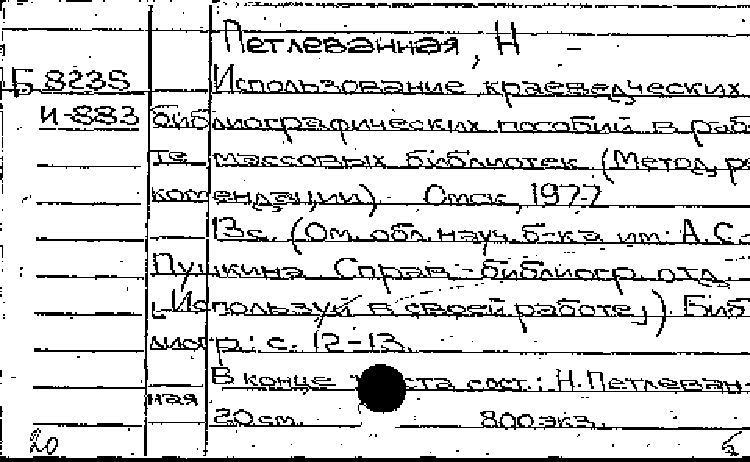 Петлеванная, Н
Б 8238 Использование краеведческих
И-883 библиографических пособий в рабо
те массовых библиотек. (Метод. ре
комендации). Омск, 1977
13с. (Ом. обл. науч. б-ка им. А.С.
Пушкина. Справ.-библиогр. отд.
„Используй в своей работе„) Биб
лиогр.: с. 12-13.
В конце текста сост.: Н.Петлеван-
ная
20 см. 800 экз.
20